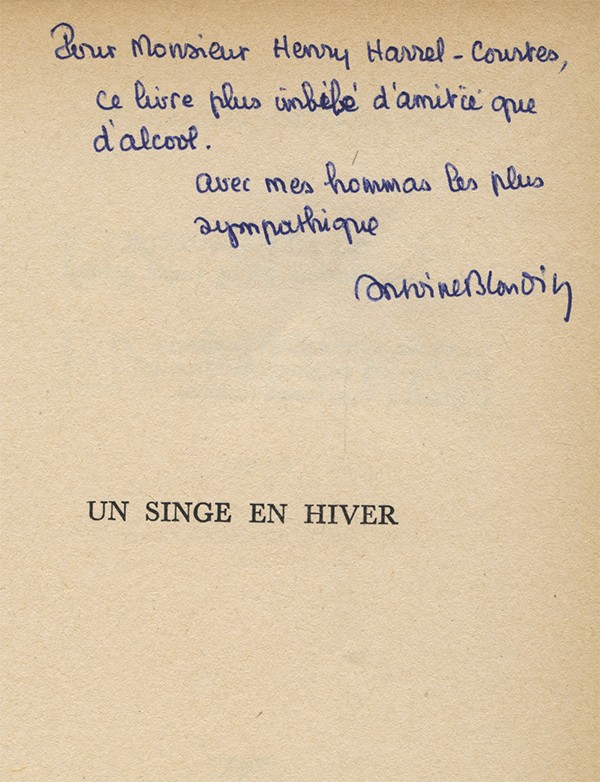 Pour Monsieur Henry Harrel-Courtes,
ce livre plus imbibé d'amitié que
d'alcool.
avec mes hommas les plus
sympathique
Antoine Blondin
UN SINGE EN HIVER